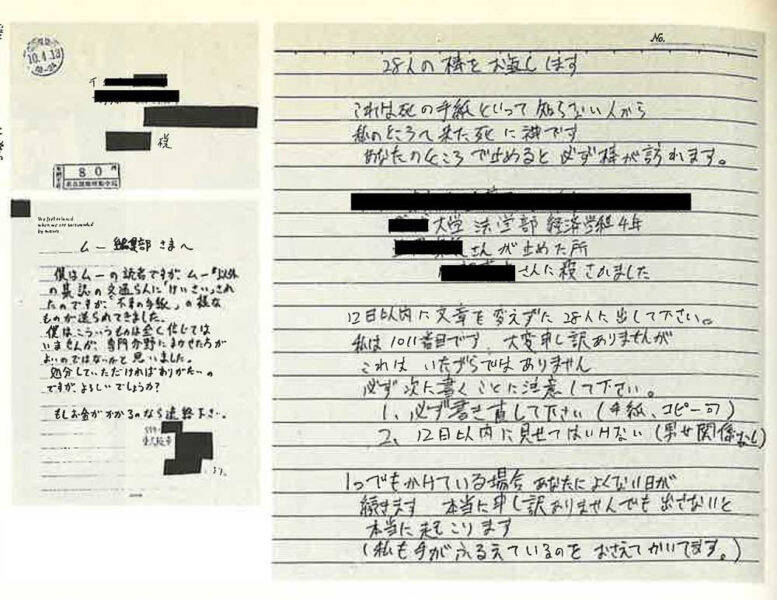 10.4.13
80
様
We feel relaxed
when we are surrounded
by nature
ムー編集部さまへ
僕はムーの読者ですが、ムー以外
の某誌の文通らんに「けいさい」され
たのですが、「不幸の手紙」の様な
ものが送られてきました。
僕はこういうものは全く信じては
いませんが、専門分野にまかせた方が
よいのではないかと思いました。
処分していただければありがたいの
ですが、よろしいでしょうか?
もしお金がかかるのなら連絡下さい。
No.
28人の棒をお返しします
これは死の手紙といって知らない人から
私のところへ来た死に神です
あなたのところで止めると必ず棒が訪れます。
大学 法学部 経済学科4年
さんが止めた所
さんに殺されました
12日以内に文章を変えずに28人に出して下さい。
私は1011番目です、大変申し訳ありませんが
これは いたずらではありません
必ず次に書くことに注意して下さい。
1、必ず書き直して下さい(手紙、コピー可)
2、12日以内に見せてはいけない(男女関係なし)
1つでもかけている場合 あなたによくない日が
続きます 本当に申し訳ありませんでも出さないと
本当に起こります
(私も手がふるえているのをおさえてかいてます。)